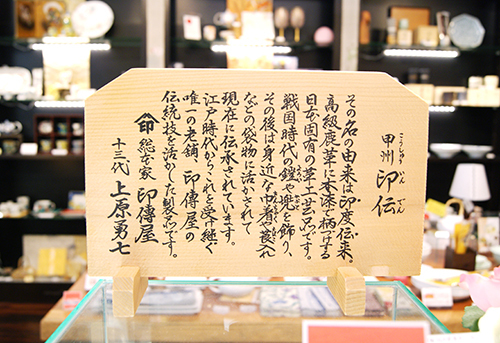 甲州 印伝
こうしゅう いんでん
その名の由来は印度伝来。
高級鹿革に本漆で柄付する
日本固有の革工芸品です。
戦国時代の鎧や兜を飾り、
その後は身近な巾着や莨入れ
などの袋物に活かされて
現在に伝承されています。
江戸時代からこれを受け継ぐ
唯一の老舗、印傳屋の
伝統技を活かした製品です。
印 総本家 印傳屋
十三代 上原勇七